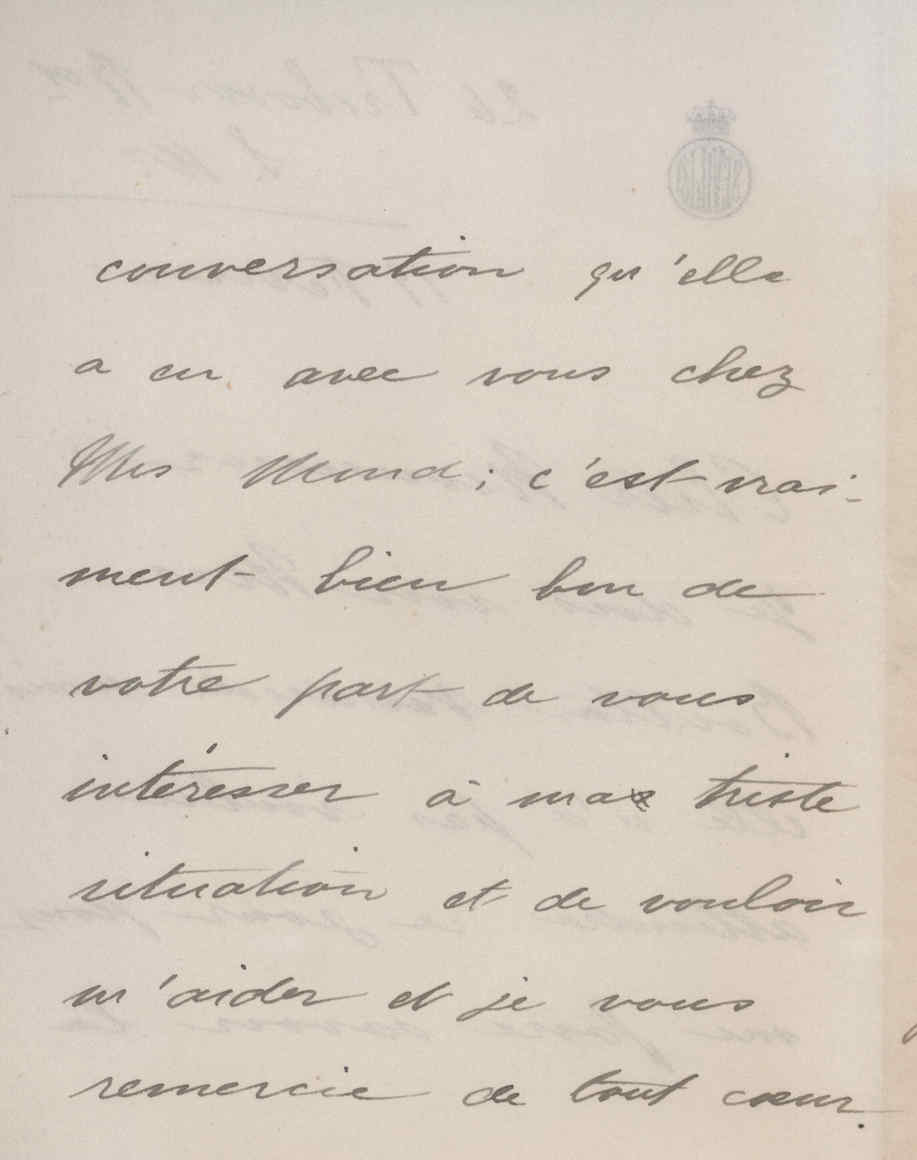 conversation qu'elle
a eu avec vous chez
Mrs Mond; c'est vrai-
ment bien bon de
votre part de vous
intéresser à ma triste
situation et de vouloir
m'aider et je vous
remercie de tout cœur.